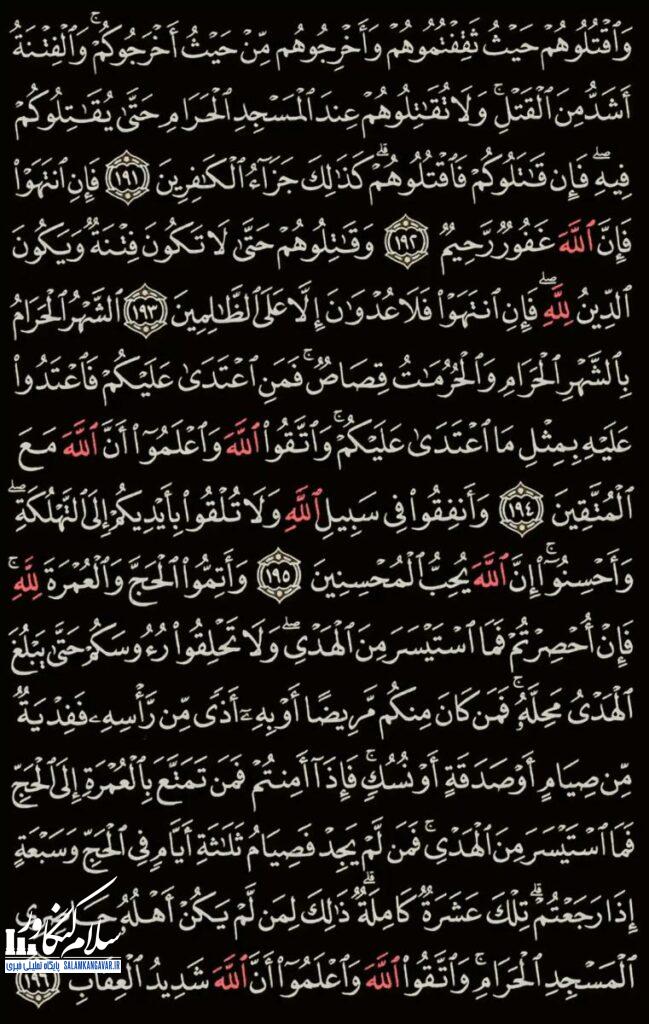 وَٱقۡتُلُوهُمۡ حَيۡثُ ثَقِفۡتُمُوهُمۡ وَأَخۡرِجُوهُم مِّنۡ حَيۡثُ أَخۡرَجُوكُمۡۚ وَٱلۡفِتۡنَةُ
أَشَدُّ مِنَ ٱلۡقَتۡلِۚ وَلَا تُقَٰتِلُوهُمۡ عِندَ ٱلۡمَسۡجِدِ ٱلۡحَرَامِ حَتَّىٰ يُقَٰتِلُوكُمۡ
فِيهِۖ فَإِن قَٰتَلُوكُمۡ فَٱقۡتُلُوهُمۡۗ كَذَٰلِكَ جَزَآءُ ٱلۡكَٰفِرِينَ ١٩١ فَإِنِ ٱنتَهَوۡاْ
فَإِنَّ ٱللَّهَ غَفُورٞ رَّحِيمٞ ١٩٢ وَقَٰتِلُوهُمۡ حَتَّىٰ لَا تَكُونَ فِتۡنَةٞ وَيَكُونَ
ٱلدِّينُ لِلَّهِۖ فَإِنِ ٱنتَهَوۡاْ فَلَا عُدۡوَٰنَ إِلَّا عَلَى ٱلظَّٰلِمِينَ ١٩٣ ٱلشَّهۡرُ ٱلۡحَرَامُ
بِٱلشَّهۡرِ ٱلۡحَرَامِ وَٱلۡحُرُمَٰتُ قِصَاصٞۚ فَمَنِ ٱعۡتَدَىٰ عَلَيۡكُمۡ فَٱعۡتَدُواْ
عَلَيۡهِ بِمِثۡلِ مَا ٱعۡتَدَىٰ عَلَيۡكُمۡۚ وَٱتَّقُواْ ٱللَّهَ وَٱعۡلَمُوٓاْ أَنَّ ٱللَّهَ مَعَ
ٱلۡمُتَّقِينَ ١٩٤ وَأَنفِقُواْ فِي سَبِيلِ ٱللَّهِ وَلَا تُلۡقُواْ بِأَيۡدِيكُمۡ إِلَى ٱلتَّهۡلُكَةِۖ
وَأَحۡسِنُوٓاْۚ إِنَّ ٱللَّهَ يُحِبُّ ٱلۡمُحۡسِنِينَ ١٩٥ وَأَتِمُّواْ ٱلۡحَجَّ وَٱلۡعُمۡرَةَ لِلَّهِۚ
فَإِنۡ أُحۡصِرۡتُمۡ فَمَا ٱسۡتَيۡسَرَ مِنَ ٱلۡهَدۡيِۖ وَلَا تَحۡلِقُواْ رُءُوسَكُمۡ حَتَّىٰ يَبۡلُغَ
ٱلۡهَدۡيُ مَحِلَّهُۥۚ فَمَن كَانَ مِنكُم مَّرِيضًا أَوۡ بِهِۦٓ أَذٗى مِّن رَّأۡسِهِۦ فَفِدۡيَةٞ
مِّن صِيَامٍ أَوۡ صَدَقَةٍ أَوۡ نُسُكٖۚ فَإِذَآ أَمِنتُمۡ فَمَن تَمَتَّعَ بِٱلۡعُمۡرَةِ إِلَى ٱلۡحَجِّ
فَمَا ٱسۡتَيۡسَرَ مِنَ ٱلۡهَدۡيِۚ فَمَن لَّمۡ يَجِدۡ فَصِيَامُ ثَلَٰثَةِ أَيَّامٖ فِي ٱلۡحَجِّ وَسَبۡعَةٍ
إِذَا رَجَعۡتُمۡۗ تِلۡكَ عَشَرَةٞ كَامِلَةٞۗ ذَٰلِكَ لِمَن لَّمۡ يَكُنۡ أَهۡلُهُۥ حَاضِرِي
ٱلۡمَسۡجِدِ ٱلۡحَرَامِۚ وَٱتَّقُواْ ٱللَّهَ وَٱعۡلَمُوٓاْ أَنَّ ٱللَّهَ شَدِيدُ ٱلۡعِقَابِ ١٩٦
سلام کنگاور
پایگاه تحلیلی خبری SALAMKANGAVAR.IR